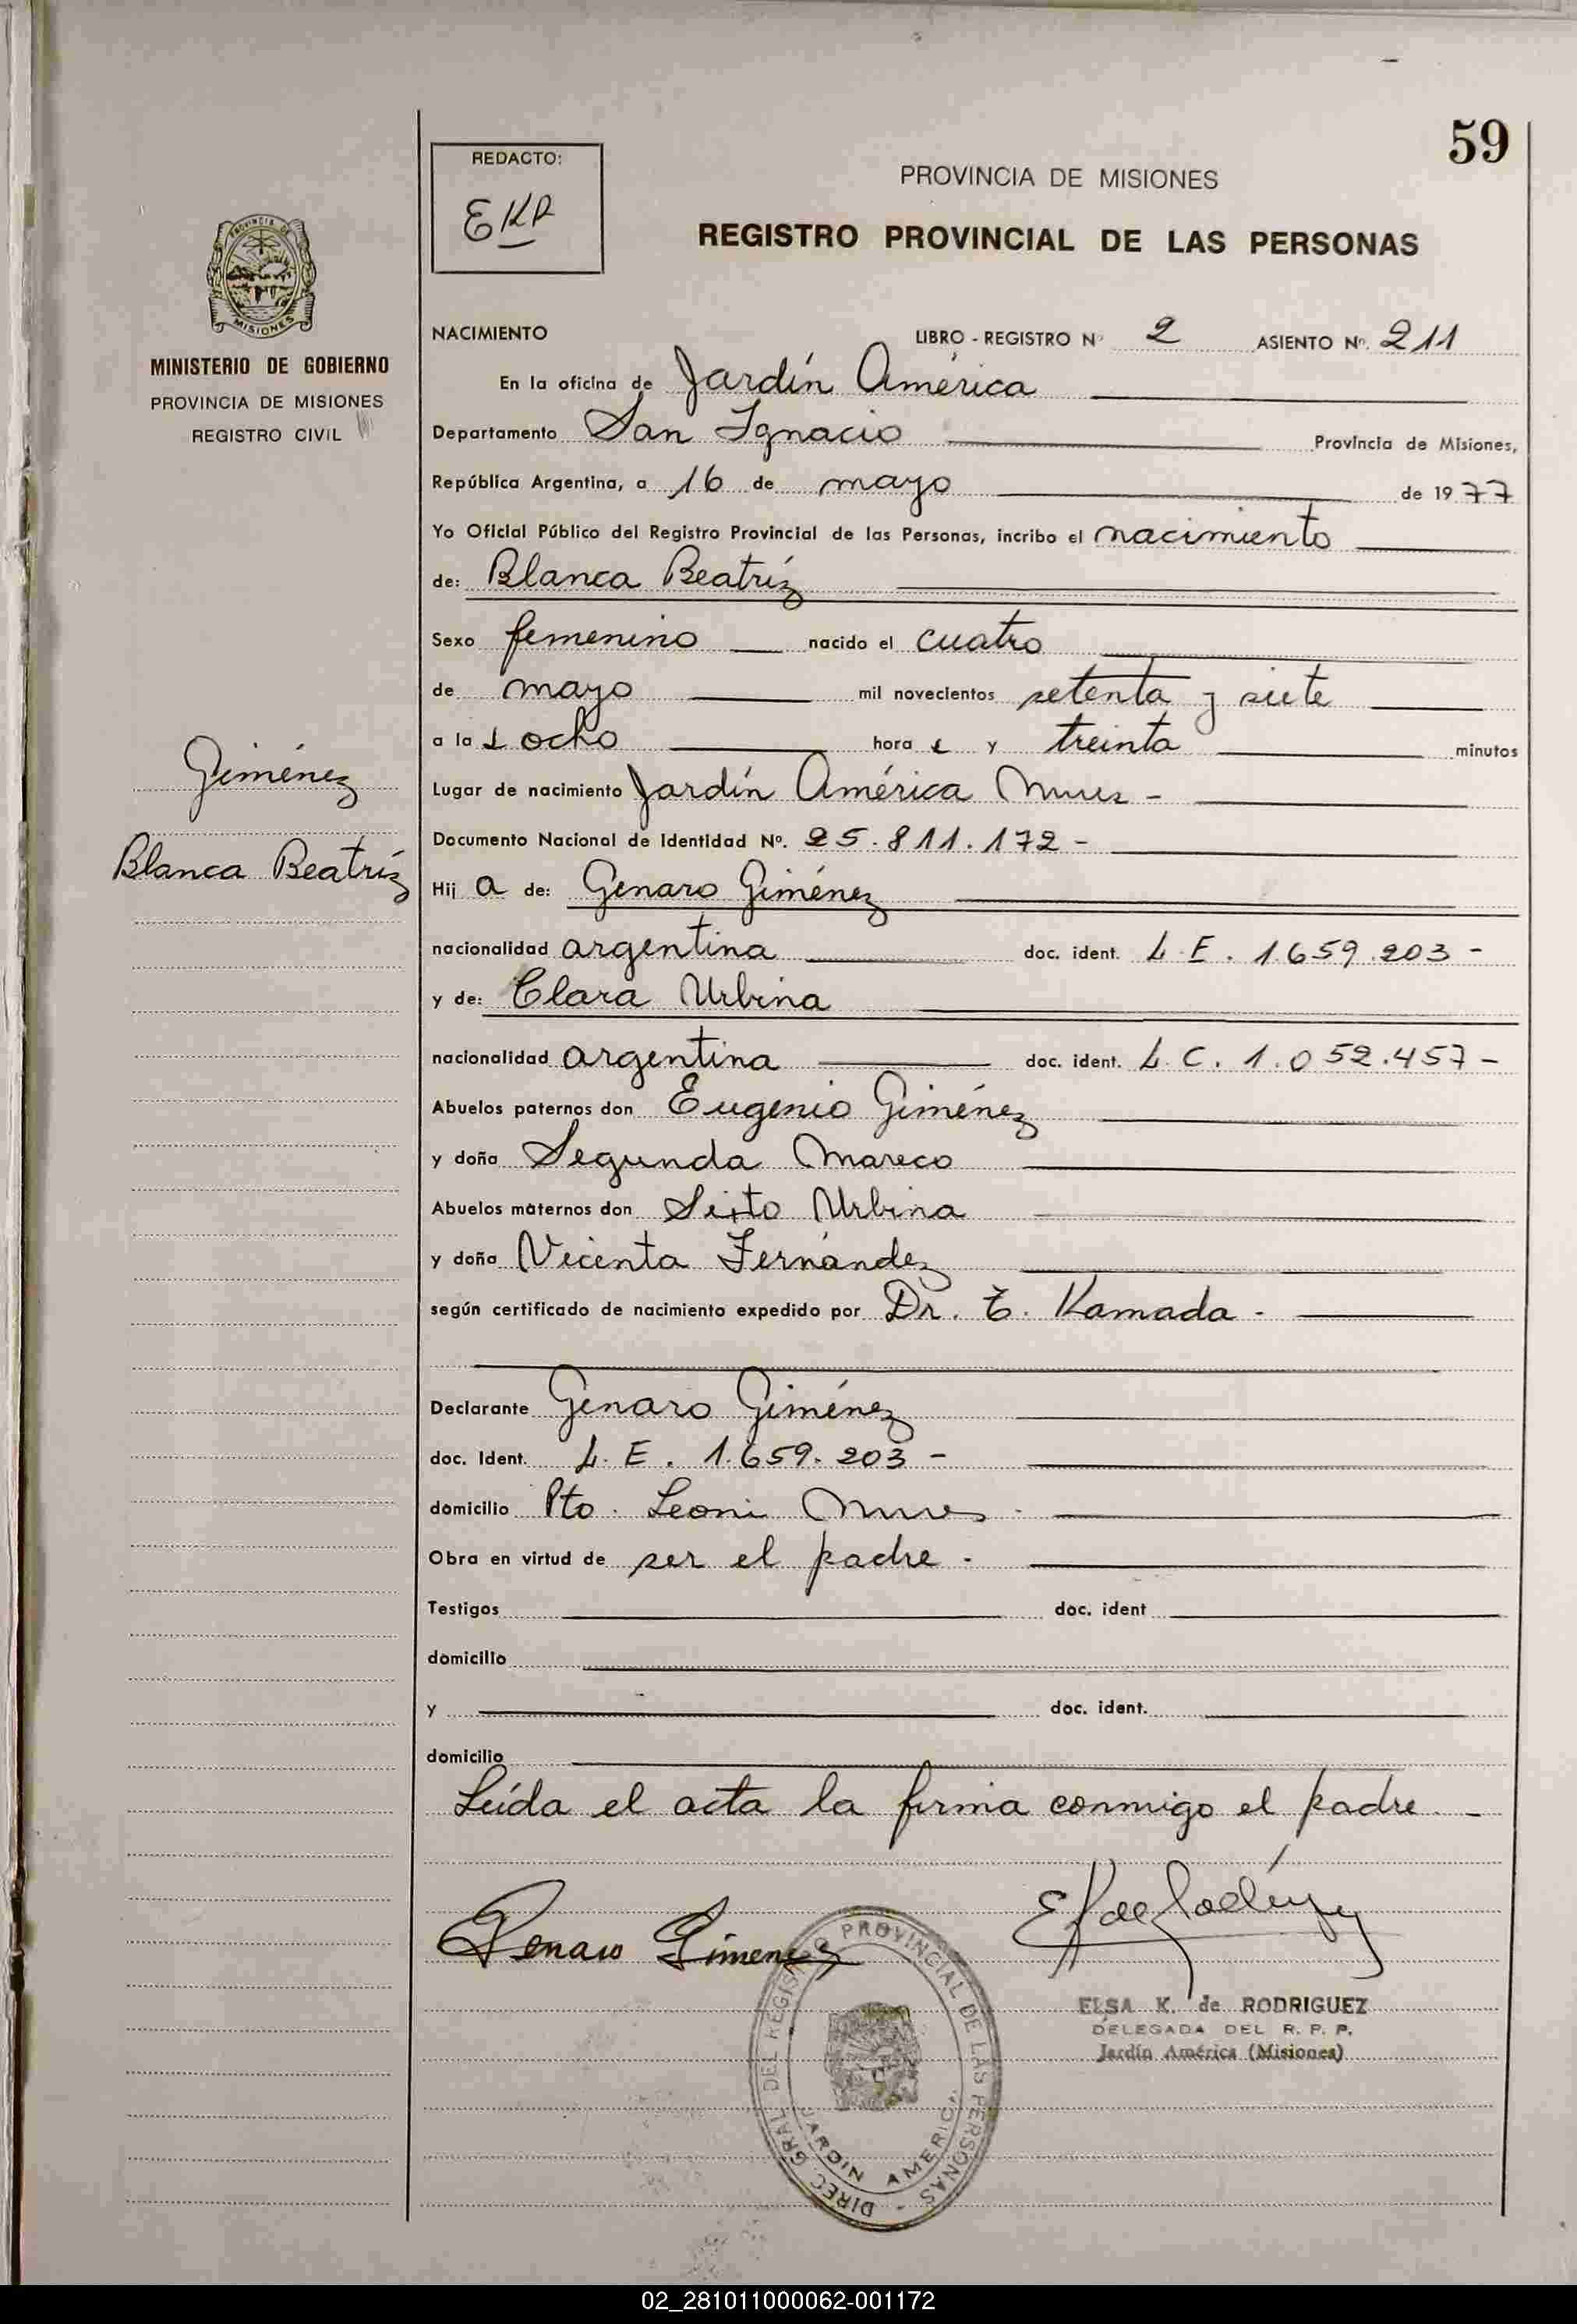 59
REDACTO:
EKR
PROVINCIA DE MISIONES
REGISTRO PROVINCIAL DE LAS PERSONAS
PROVINCIA DE
MISIONES
MINISTERIO DE GOBIERNO
PROVINCIA DE MISIONES
REGISTRO CIVIL
Giménez
Blanca Beatríz
NACIMIENTO LIBRO - REGISTRO Nº 2 ASIENTO Nº. 211
En la oficina de Jardín América
Departamento San Ignacio Provincia de Misiones,
República Argentina, a 16 de mayo de 1977
Yo Oficial Público del Registro Provincial de las Personas, incribo el nacimiento
de: Blanca Beatríz
Sexo femenino nacido el cuatro
de mayo mil novecientos setenta y siete
a las ocho horas y treinta minutos
Lugar de nacimiento Jardín América Mnes -
Documento Nacional de Identidad Nº. 25.811.172 -
Hija de: Genaro Giménez
nacionalidad argentina doc. ident. L.E. 1.659.203 -
y de: Clara Urbina
nacionalidad argentina doc. ident. L.C. 1.052.457 -
Abuelos paternos don Eugenio Giménez
y doña Segunda Mareco
Abuelos maternos don Sixto Urbina
y doña Vicenta Fernández
según certificado de nacimiento expedido por Dr. T. Kamada -
Declarante Genaro Giménez
doc. Ident. L.E. 1.659.203 -
domicilio Pto. Leoni Mnes -
Obra en virtud de ser el padre -
Testigos doc. ident
domicilio
y doc. ident.
domicilio
Leída el acta la firma conmigo el padre -
Genaro Gimenez
ELSA K. de RODRIGUEZ
DELEGADA DEL R. P. P.
Jardín América (Misiones)
DIREC. GRAL DEL REGISTRO PROVINCIAL DE LAS PERSONAS -
JARDIN AMERICA
02_281011000062-001172